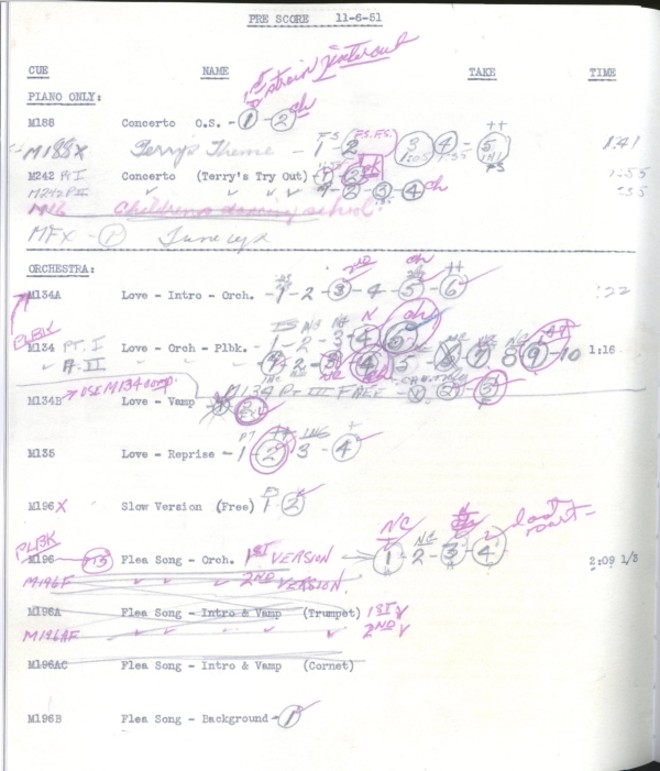 PRE SCORE 11-6-51
1ST strain
CUE NAME TAKE TIME
PIANO ONLY:
M188 Concerto O.S. - 1 - 2 ch
M188X Terry's Theme - 1 - 2 3 4 - 5 1:41
M242 PT I Concerto (Terry's Try Out) 1 - 2 1:55
M242 PT II 1 - 2 - 3 - 4 ch :35
M16 Children's dancing school
MFX - P Tune up
ORCHESTRA:
M134A Love - Intro - Orch. - 1 - 2 - 3 - 4 - 5 - 6 :22
PLBK
M134 PT. I Love - Orch - Plbk. - 1 - 2 - 3 4 6 1:16
PT. II 1 - 2 - 3 4 5 - 6 - 7 8 9 - 10
USE M134 comp.
M134 PT III FREE
M134B Love - Vamp
M135 Love - Reprise - 1 - 2 - 3 - 4
M196X Slow Version (Free) 1 - 2
PLBK
M196 Flea Song - Orch. 1ST VERSION 1 - 2 - 3 - 4 NC last part 2:09 1/3
M196F 2ND VERSION.
M196A Flea Song - Intro & Vamp (Trumpet) 1ST
M196AF 2ND
M196AC Flea Song - Intro & Vamp (Cornet)
M196B Flea Song - Background - 1